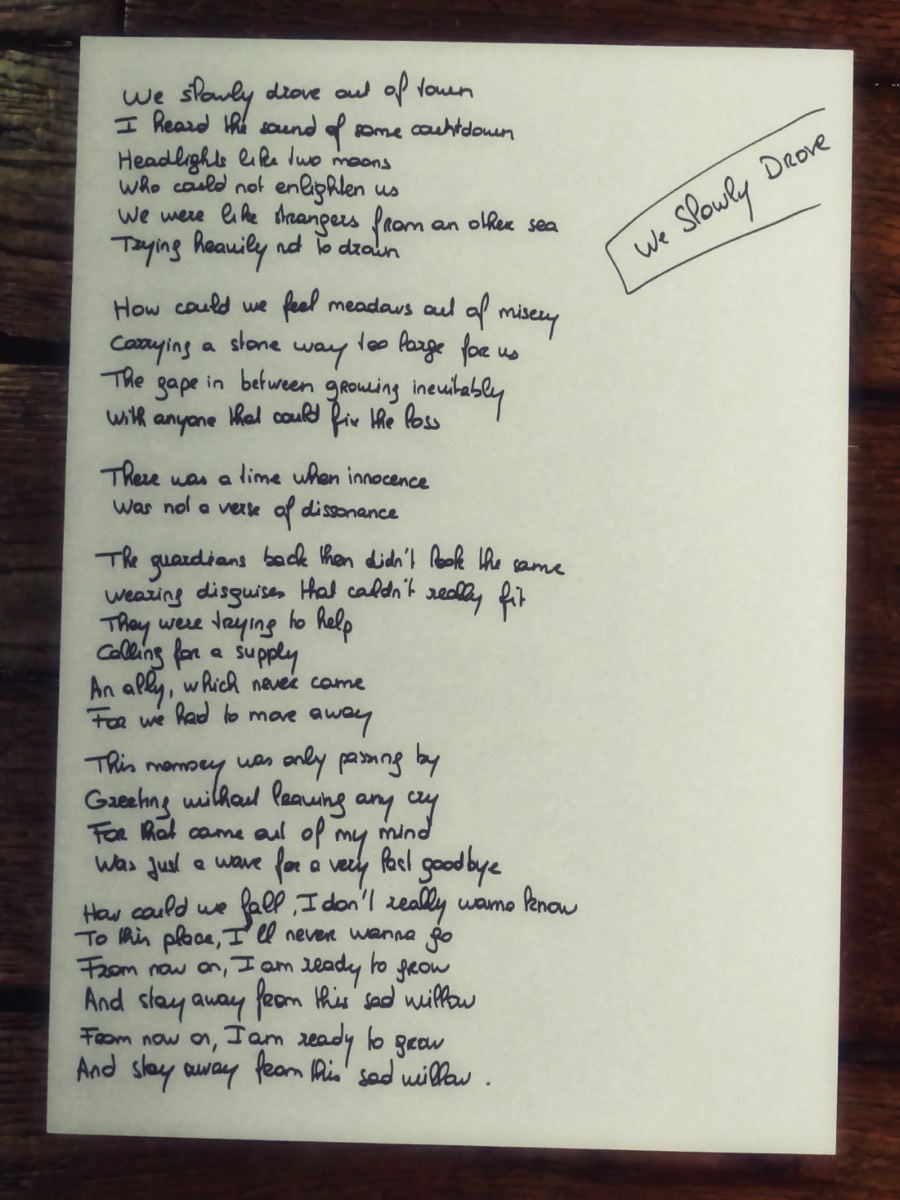 We slowly drove out of town
I heard the sound of some countdown
Headlights like two moons
Who could not enlighten us
We were like strangers from an other sea
Trying heavily not to drown
We Slowly Drove
How could we feel meadows out of misery
Carrying a stone way too large for us
The gape in between growing inevitably
With anyone that could fix the loss
There was a time when innocence
Was not a verse of dissonance
The guardians back then didn't look the same
Wearing disguises that couldn't really fit
They were trying to help
Calling for a supply
An ally, which never came
For we had to move away
This memory was only passing by
Greeting without leaving any cry
For that came out of my mind
Was just a wave for a very last goodbye
How could we fall, I don't really wanna know
To this place, I'll never wanna go
From now on, I am ready to grow
And stay away from this sad willow
From now on, I am ready to grow
And stay away from this sad willow.